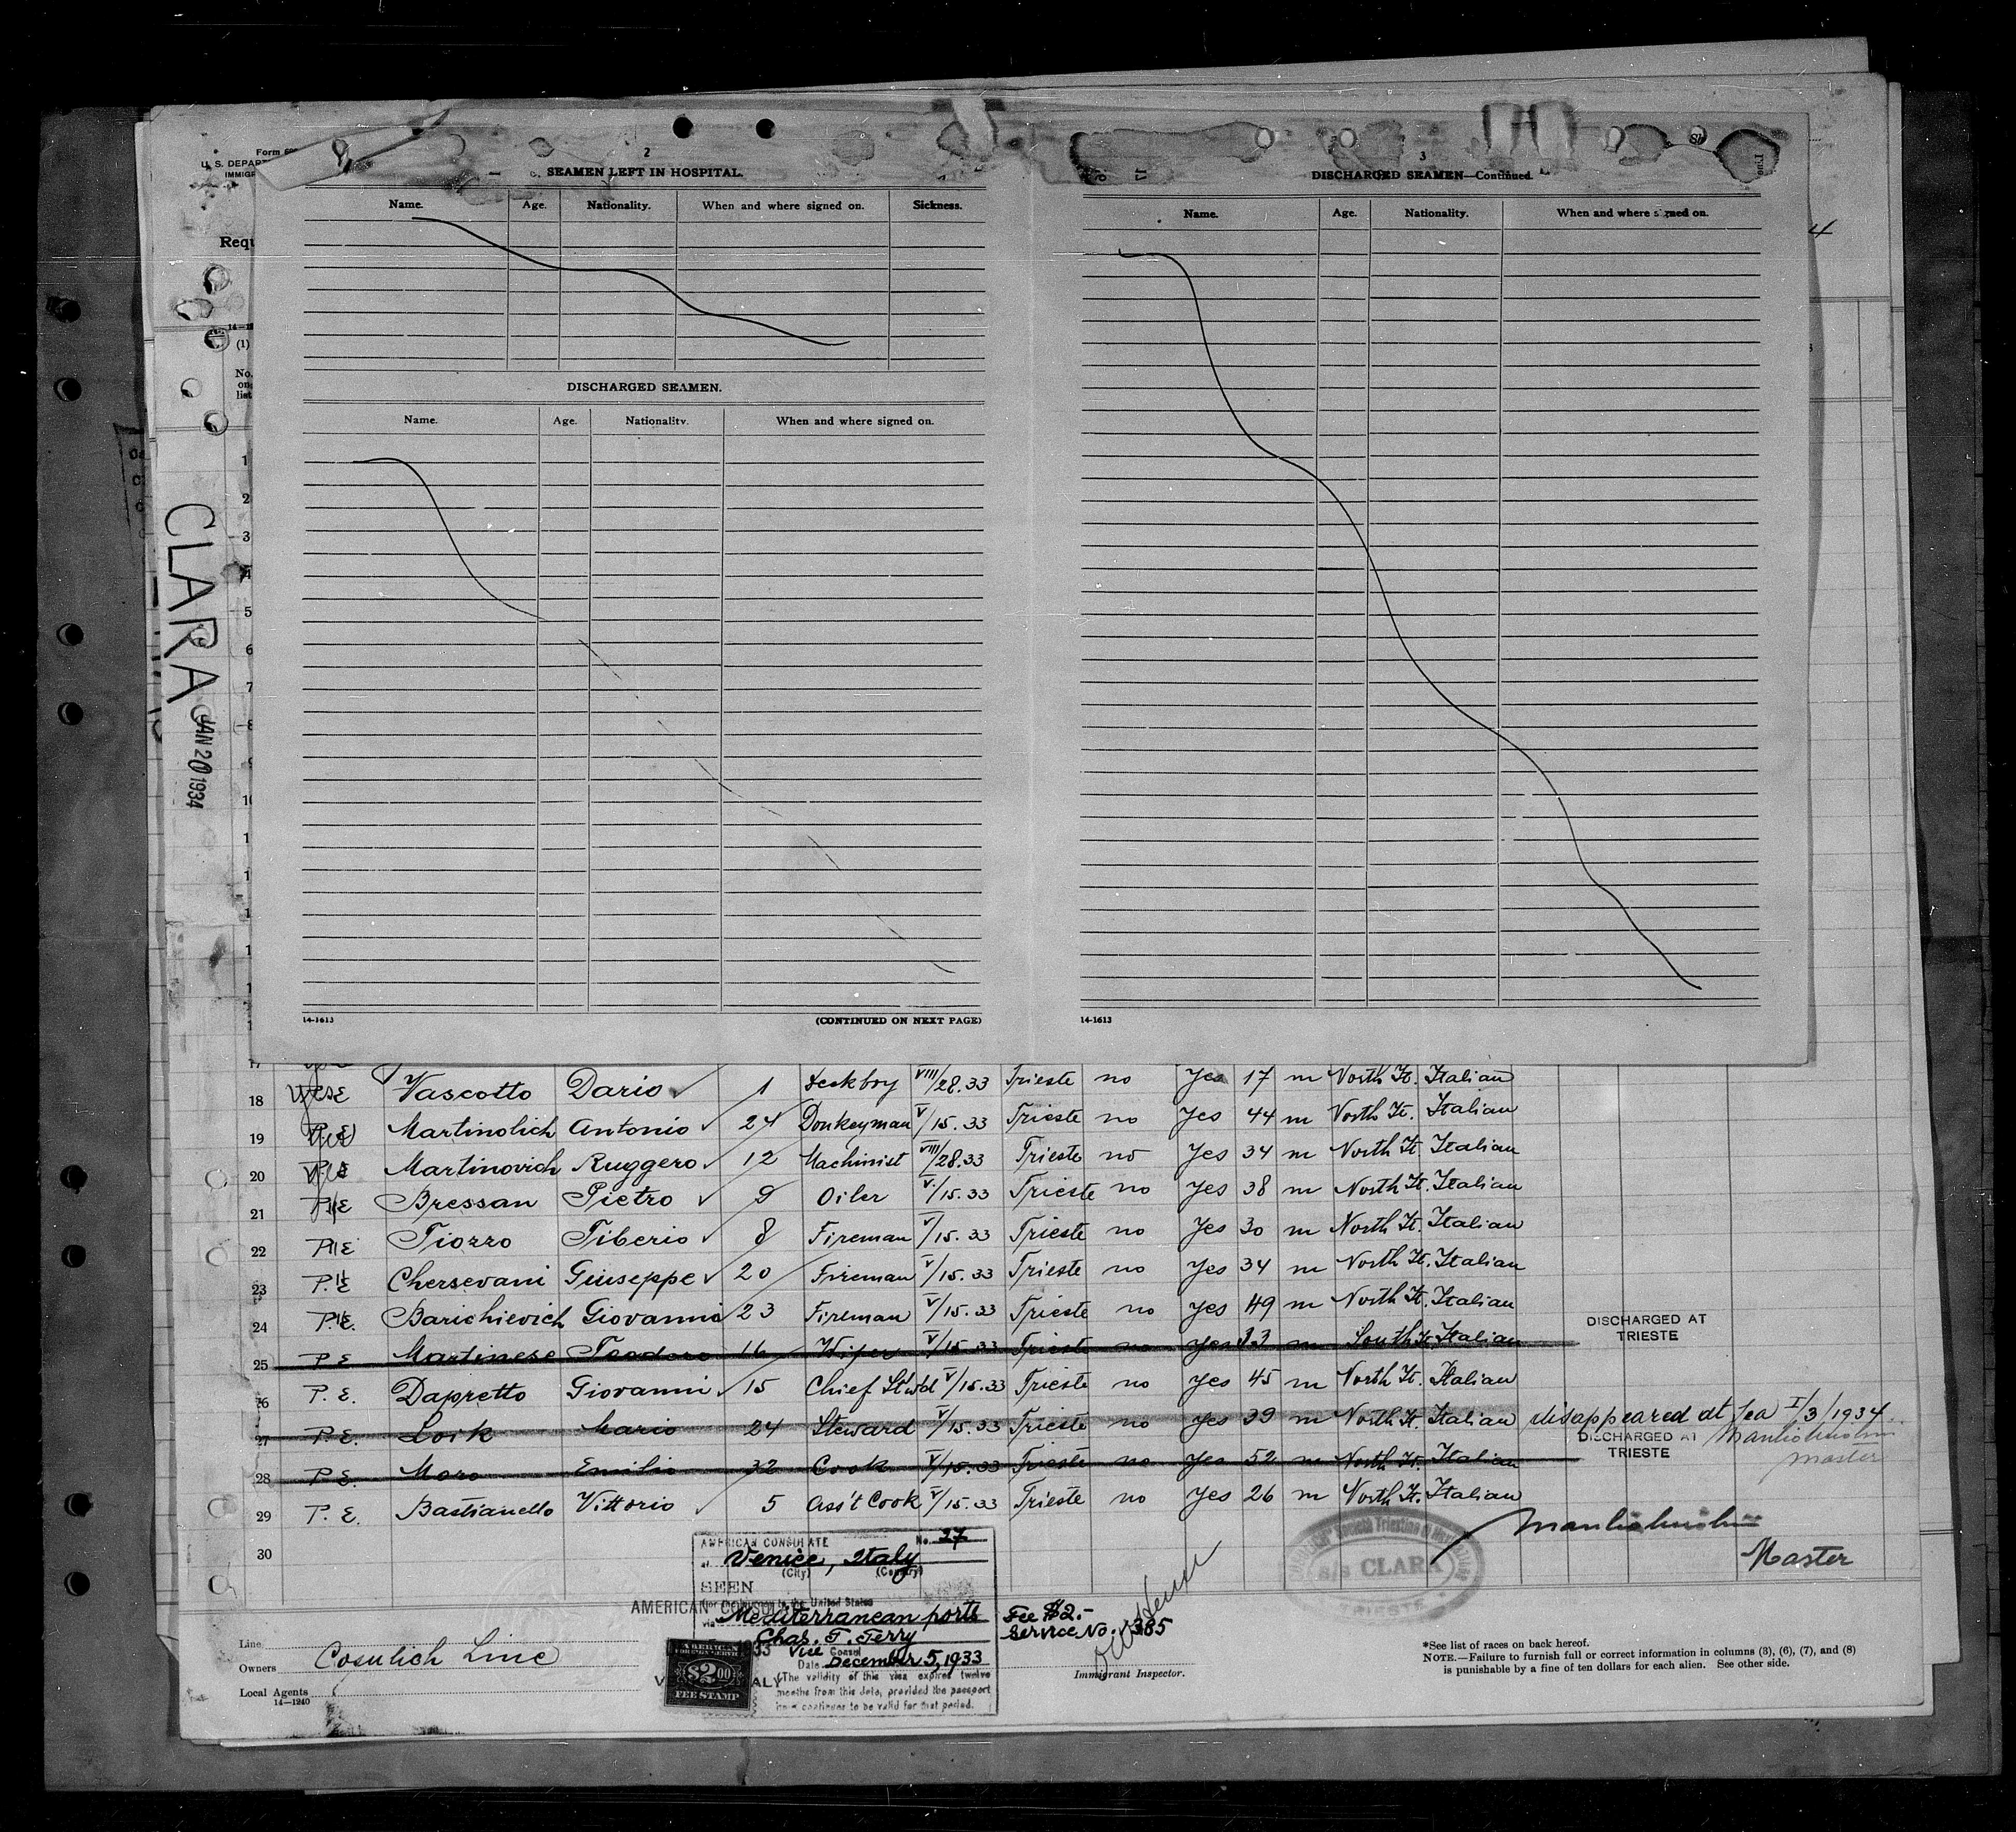 Form
U. S. DEPART
IMMIGR
Requ
14-1
(1)
No.
on
list
CLARA
JAN 20 1934
4
2
SEAMEN LEFT IN HOSPITAL.
Name. Age. Nationality. When and where signed on. Sickness.
DISCHARGED SEAMEN.
Name. Age. Nationality. When and where signed on.
14-1613
(CONTINUED ON NEXT PAGE)
3
DISCHARGED SEAMEN—Continued.
Name. Age. Nationality. When and where signed on.
14-1613
1
2
3
4
5
6
7
8
9
10
17
18 Vascotto Dario 1 Deckboy VIII/28.33 Trieste no Yes 17 m North It. Italian
19 Martinolich Antonio 24 Donkeyman V/15.33 Trieste no Yes 44 m North It. Italian
20 Martinovich Ruggero 12 Machinist VIII/28.33 Trieste no Yes 34 m North It. Italian
21 Bressan Pietro 9 Oiler V/15.33 Trieste no Yes 38 m North It. Italian
22 Tiozzo Tiberio 8 Fireman V/15.33 Trieste no Yes 30 m North It. Italian
23 P.E Chersevani Giuseppe 20 Fireman V/15.33 Trieste no Yes 34 m North It. Italian
24 P.E. Barichievich Giovanni 23 Fireman V/15.33 Trieste no Yes 49 m North It. Italian
DISCHARGED AT
TRIESTE
25 P E Martinese Teodoro 16 Wiper V/15.33 Trieste no yes 33 m South It. Italian
26 P. E. Dapretto Giovanni 15 Chief St'wd V/15.33 Trieste no Yes 45 m North It. Italian
27 P. E. Loik Mario 24 Steward V/15.33 Trieste no Yes 39 m North It. Italian disappeared at sea I/3/1934
DISCHARGED AT
TRIESTE
master
28 P E. Moro Emilio 32 Cook V/15.33 Trieste no Yes 52 m North It. Italian
29 P. E. Bastianello Vittorio 5 Ass't Cook V/15.33 Trieste no Yes 26 m North It. Italian
30
Master
s/s CLARA
TRIESTE
AMERICAN CONSULATE No. 27
at Venice, Italy
(City) (Country)
SEEN
for the United States
AMERICAN CONSUL
via Mediterranean ports
Chas. T. Terry
Vice Consul
Date December 5, 1933
(The validity of this visa expires twelve
months from this date, provided the passport
continues to be valid for that period.
$2.00
FEE STAMP
Fee $2.-
Service No. 385
Immigrant Inspector.
Line
Owners Cosulich Line
Local Agents
14—1240
*See list of races on back hereof.
NOTE.—Failure to furnish full or correct information in columns (3), (6), (7), and (8)
is punishable by a fine of ten dollars for each alien. See other side.